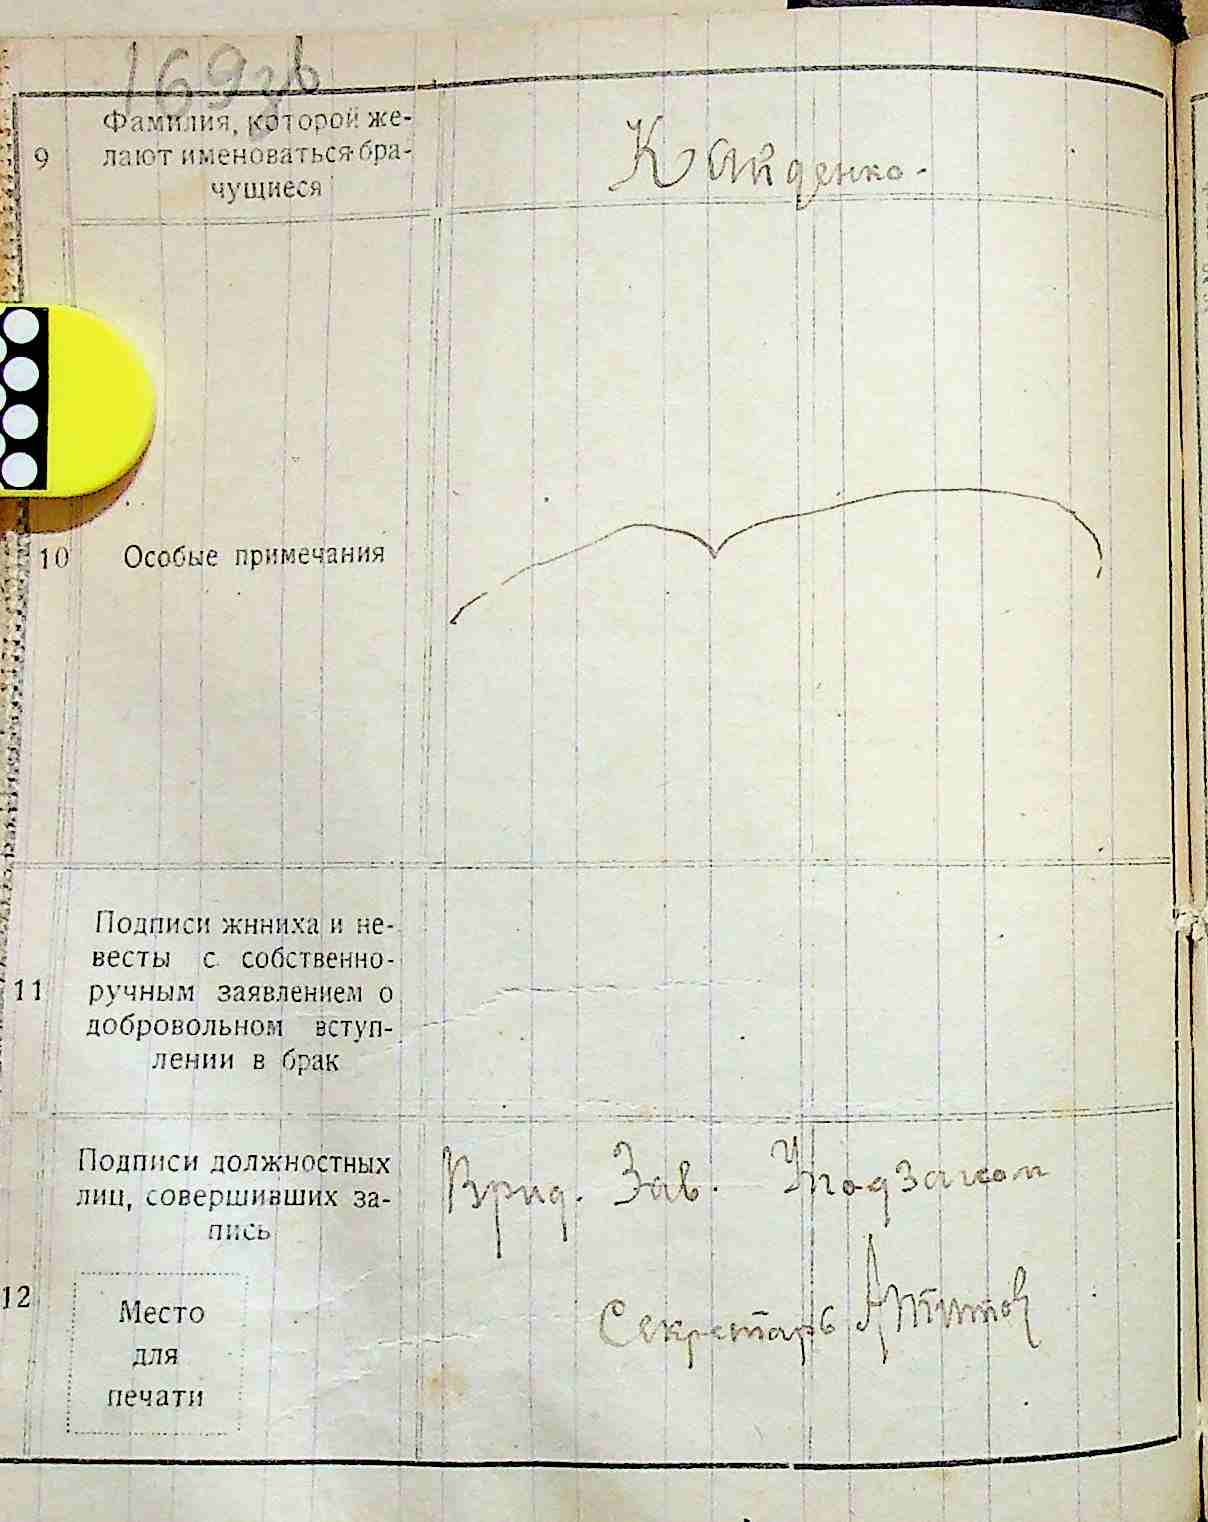 169 зв
9 Фамилия, которой же-
лают именоваться бра-
чущиеся
Кайденко.
10 Особые примечания
11 Подписи жнниха и не-
весты с собственно-
ручным заявлением о
добровольном вступ-
лении в брак
Подписи должностных
лиц, совершивших за-
пись
Врид. Зав.
Секретарь
12 Место
для
печати